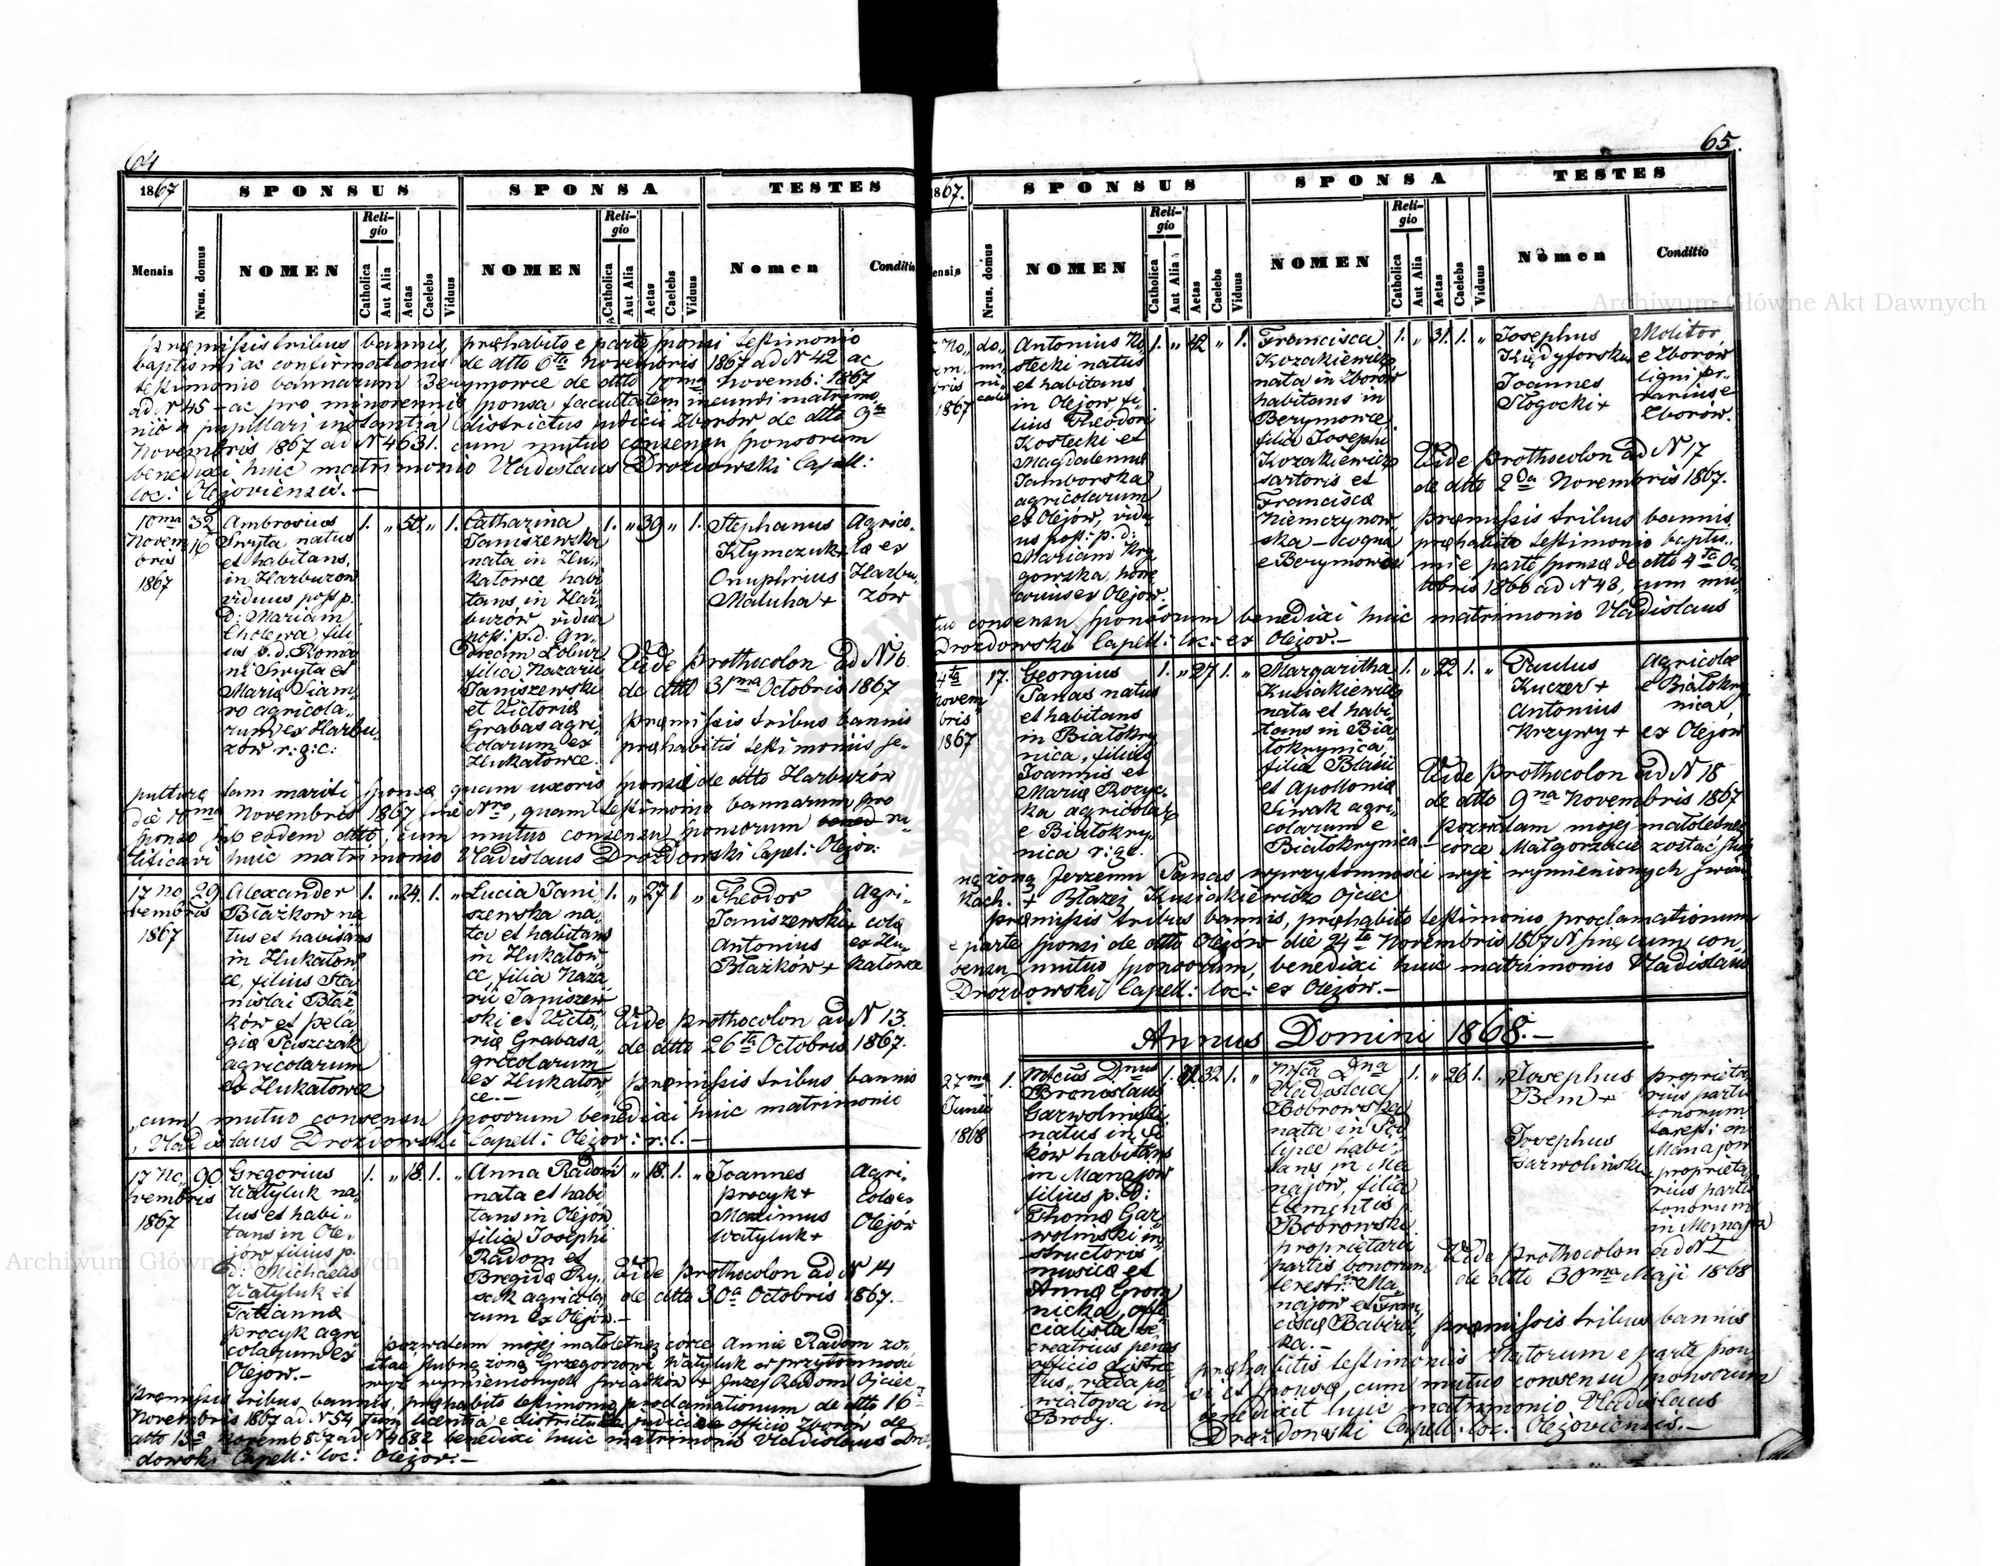 64
1867
SPONSUS
SPONSA
TESTES
Mensis
Nrus. domus
NOMEN
Religio
Catholica
Aut Alia
Aetas
Caelebs
Viduus
NOMEN
Religio
Catholica
Aut Alia
Aetas
Caelebs
Viduus
Nomen
Conditio
præmissis tribus bannis, præhabito e parte sponsi testimonio
baptismi ac confirmationis de dtto 6ta Novembris 1867 ad N 42 ac
testimonio bannarum Berymowce de dtto 10ma Novemb: 1867
ad N 45 - ac pro minorennis sponsa facultatem ineundi matrimo
nio a pupillari instantia districtus judicii Zborów de dtto 9na
Novembris 1867 ad N 4631. cum mutuo consensu sponsorum
benedixi huic matrimonio Vladislaus Drozdowski Capell:
loc: Olejoviensis.—
10ma Novembris 1867
32 16
Ambrosius
Swyta natus
et habitans,
in Harbuzow
viduus post p.
d: Mariam
Cholewa, fili
us s. d. Roma
ni Swyta et
Mariæ Siam
ro agricola,
rum ex Harbu,
zów r: g: c:
1. „ 50 „ 1.
Catharina
Janiszewska
nata in Hu
katowce habi
tans in Har
buzów vidua
post: p. d. An
dream Lobur
filia Nazarii
Janiszewski
et Victoriæ
Grabas agri
colarum ex
Hukatowce.
1. „ 39 „ 1.
Stephanus
Klymczuk+
Onuphrius
Maluha+
Agrico
læ ex
Harbu,
zów
Vide prothocolon ad N 16.
de dtto 31ma Octobris 1867
præmissis tribus bannis
præhabitis testimoniis se-
pulturæ tam mariti sponsæ quam uxoris sponsi de dtto Harbuzów
die 10ma Novembris 1867 sine Nro, quam testimonio bannarum pro
sponso sub eodem dtto, cum mutuo consensu sponsorum ra-
tificavi huic matrimonio Vladislaus Drozdowski Capel: Olejov:
17 No
vembris
1867
29
Alexander
Błażkow na
tus et habitans
in Hukatow
ce, filius Sta
nislai Błaż
ków et Pela
giæ Paszczak
agricolarum
ex Hukatowce
1. „ 24. 1. „
Lucia Jani
szewska na
ta et habitans
in Hukatow,
ce, filia Naza
rii Janiszew
ski et Victo,
riæ Grabas a
gricolarum
ex Hukatow
ce.—
1. „ 27 1 „
Theodor
Janiszewski+
Antonius
Błażków+
Agri-
colæ
ex Hu
katowce
Vide prothocolon ad N 13.
de dtto 26ta Octobris 1867.
præmissis tribus bannis
cum mutuo consensu sponsorum benedixi huic matrimonio
Vladislaus Drozdowski Capell: Olejov: r: l.—
17 No,
vembris
1867
90
Gregorius
Watyluk na
tus et habi
tans in Ole
jów filius p.
d: Michaelis
Watyluk et
Tatiannæ
Procyk agri
colarum ex
Olejow.—
1. „ 18. 1. „
Anna Radom
nata et habi
tans in Olejów
filia Josephi
Radom et
Bregidæ Ry,
sak agricola
rum ex Olejów.—
1. „ 18. 1. „
Joannes
Procyk+
Maximus
Watyluk+
Agri-
colæ ex
Olejów
Vide prothocolon ad N 14
de dtto 30a Octobris 1867.—
pozwalam mojej małoletniej corce Annie Radom zo,
stać ślubną żoną Grzegorzowi Watyluk w przytomności
wyż wymienionych świadków + Juzej Radom Ojciec
præmissis tribus bannis, præhabito testimonio proclamationum de dtto 16
Novembris 1867 ad N 54 tum licentia e districtuale judiciale officio Zborów de
dtto 13a Novemb 867 ad N 4682 benedixi huic matrimonio Vladislaus Droz
dowski Capell: loc: Olejov.—
65.
1867.
SPONSUS
SPONSA
TESTES
Mensis
Nrus. domus
NOMEN
Religio
Catholica
Aut Alia
Aetas
Caelebs
Viduus
NOMEN
Religio
Catholica
Aut Alia
Aetas
Caelebs
Viduus
Nomen
Conditio
1867
do
mi
ni
cali
Antonius Ko
stecki natus
et habitans
in Olejow fi
lius Theodori
Kostecki et
Magdalenæ
Jamborska
agricolarum
ex Olejów, vidu
us post: p: d:
Mariam Kry
gowska, 
ex Olejow.
1. „ 42 „ 1.
Francisca
Kozakiewicz
nata in Zborów
habitans in
Berymowce
filia Josephi
Kozakiewicz
sartoris et
Franciscæ
Niemczynow
ska — 
e Berymowce
1. „ 31. 1. „
Josephus
Joannes
Słogocki+
Molitor
e Zborów
ligni
rarius e
Zborów.
Vide prothocolon ad N 17
de dtto 2da Novembris 1867.
præmissis tribus bannis
præhabito testimonio baptis,
mi e parte sponsæ de dtto 4ta Oc
tobris 1866 ad N 43, cum mu
tuo consensu sponsorum benedixi huic matrimonio Vladislaus
Drozdowski Capell: loc: ex Olejov.—
24ta
Novem
bris
1867
17.
Georgius
Panas natus
et habitans
in Białokry
nica, filius
Joannis et
Mariæ Rozyc
ka agricolarum
e Białokry
nica r: gc.
1. „ 27 1. „
Margaritha
Kusiakiewicz
nata et habi
tans in Bia
łokrynica,
filia Blasii
et Apolloniæ
Siwak agri
colarum e
Białokrynica —
1. „ 22 1. „
Paulus
Kuczer+
Antonius
Krzywy+
Agricolæ
e Białokry
nica,
ex Olejów
Vide prothocolon ad N 18
de dtto 9na Novembris 1867
pozwalam mojej małoletniej
córce Małgorzacie zostać ślub
ną żoną Jerzemu Panas w przytomności wyż wymienionych świad
kach. + Błażej Kusiakiewicz Ojciec
præmissis tribus bannis, præhabito testimonio proclamationum
e parte sponsi de dtto Olejów die 24ta Novembris 1867 N sine cum con,
sensu mutuo sponsorum, benedixi huic matrimonio Vladislaus
Drozdowski Capell: loc: ex Olejów.—
Annus Domini 1868.—
27ma
Junii
1868
1.
Mfcus Dnus
Bronislaus
Garwolinski
natus in Fi
ków habitans
in Manajow
filius p. d:
Thomæ Gar
wolinski in
structoris
musicæ et
Annæ Grom
nicka, offi
cialista se
creatrius penes
officio distric
tus, rada po
wiatowa in
Brody.
1. 32 1. „
Mfca Dna
Vladislava
Bobrowska
nata in Pod
lipce habi
tans in Ma
najow, filia
Clementis
Bobrowski
proprietarii
partis bonorum
terestr: in Ma
najow et Fran
ciscæ Babirec
ka.—
1. „ 26 1. „
Josephus
Bem+
Josephus
Garwolinski
proprieta
rius partis
bonorum
terest: in
Manajow
proprieta
rius partis
bonorum
in Manajow
Vide prothocolon ad N I
de dtto 30ma Maji 1868
præmissis tribus bannis
præhabitis testimoniis Natorum e parte spon
si et sponsæ, cum mutuo consensu sponsorum
benedixit hujc matrimonio Vladislaus
Drozdowski Capell. loc: Olejoviensis.—
Archiwum Główne Akt Dawnych
Archiwum Główne Akt Dawnych